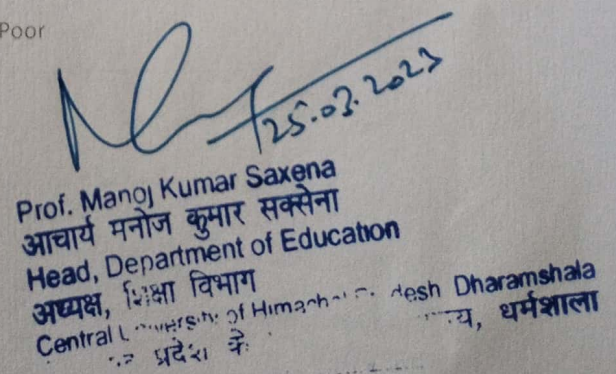 Poor
25.03.2023
Prof. Manoj Kumar Saxena
आचार्य मनोज कुमार सक्सेना
Head, Department of Education
अध्यक्ष, शिक्षा विभाग
Central University of Himachal Pradesh Dharamshala
प्रदेश के धर्मशाला